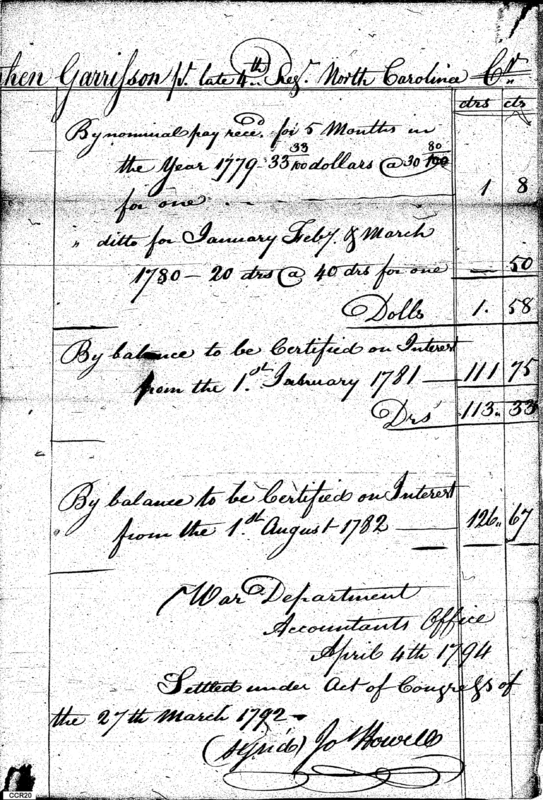 phen Garrisson pr. late 4th Regt. North Carolina Cr.
drs cts
By nominal pay recd. for 5 Months in
the Year 1779 - 33 33/100 dollars @ 30 80/100
for one 1 8
" ditto for January Feby. & March
1780 - 20 drs @ 40 drs for one — 50
Dolls 1. 58
By balance to be Certified on Interest
from the 1.st January 1781 — 111 75
Drs 113. 33
By balance to be Certified on Interest
from the 1.st August 1782 — 126. 67
War Department
Accountants Office
April 4th 1794
Settled under Act of Congress of
the 27th March 1792 -
(signd) Jos Howell
CCR20